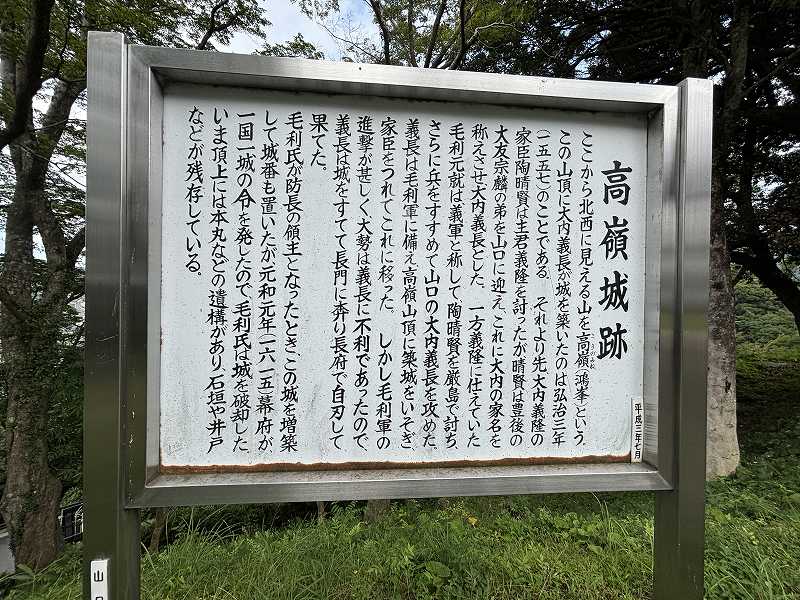 高嶺城跡
ここから北西に見える山を高嶺(鴻峯)という。
この山頂に大内義長が城を築いたのは弘治三年
(一五五七)のことである。それより先大内義隆の
家臣陶晴賢は主君義隆を討ったが晴賢は豊後の
大友宗麟の弟を山口に迎え、これに大内の家名を
称えさせ大内義長とした。一方義隆に仕えていた
毛利元就は義軍と称して陶晴賢を厳島で討ち、
さらに兵をすすめて山口の大内義長を攻めた。
義長は毛利軍に備え高嶺山頂に築城をいそぎ、
家臣をつれてこれに移った。しかし毛利軍の
進撃が甚しく大勢は義長に不利であったので
義長は城をすてて長門に奔り長府で自刃して
果てた。
毛利氏が防長の領主となったとき、この城を増築
して城番も置いたが元和元年(一六一五)幕府が、
一国一城の令を発したので毛利氏は城を破却した。
いま頂上には本丸などの遺構があり、石垣や井戸
などが残存している。
平成三年七月
山